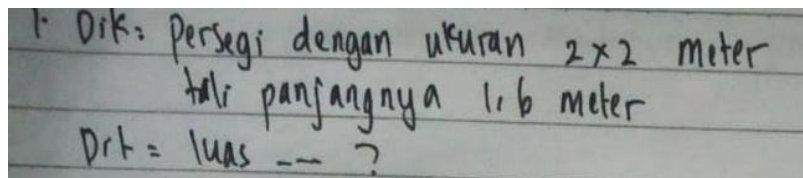 1. Dik: Persegi dengan ukuran 2x2 meter
tali panjangnya 1,6 meter
Dit = luas --- ?